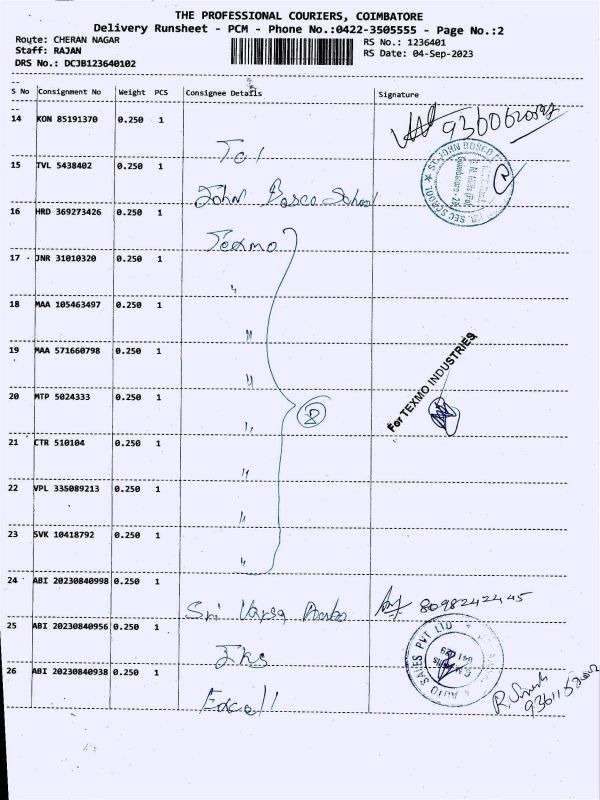 THE PROFESSIONAL COURIERS, COIMBATORE
Delivery Runsheet - PCM - Phone No.:0422-3505555 - Page No.:2
Route: CHERAN NAGAR
Staff: RAJAN
DRS No.: DCJB123640102
RS No.: 1236401
RS Date: 04-Sep-2023
S No Consignment No Weight PCS Consignee Details Signature
14 KON 85191370 0.250 1
Tol
15 TVL 5438402 0.250 1
John Bosco School
16 HRD 369273426 0.250 1
Texmo
17 JNR 31010320 0.250 1
"
18 MAA 105463497 0.250 1
"
19 MAA 571660798 0.250 1
"
20 MTP 5024333 0.250 1
"
8
For TEXMO INDUSTRIES
21 CTR 510104 0.250 1
"
22 VPL 335089213 0.250 1
"
23 SVK 10418792 0.250 1
"
24 ABI 20230840998 0.250 1
Sri 8098242445
25 ABI 20230840956 0.250 1
AUTO SALES PVT LTD
26 ABI 20230840938 0.250 1
Excell